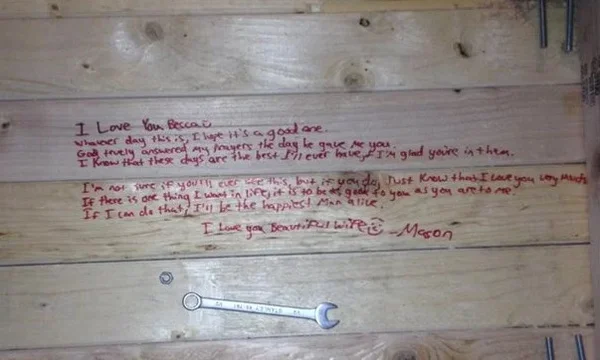 I Love You Becca
Whatever day this is, I hope it's a good one.
God truely answered my prayers the day he gave me you.
I know that these days are the best I'll ever have, & I'm glad you're in them.
I'm not sure if you'll ever see this, but if you do, Just Know that I Love you very Much
If there is one thing I want in life, it is to be as good to you as you are to me.
If I can do that, I'll be the happiest Man alive.
I love you Beautiful Wife -Mason